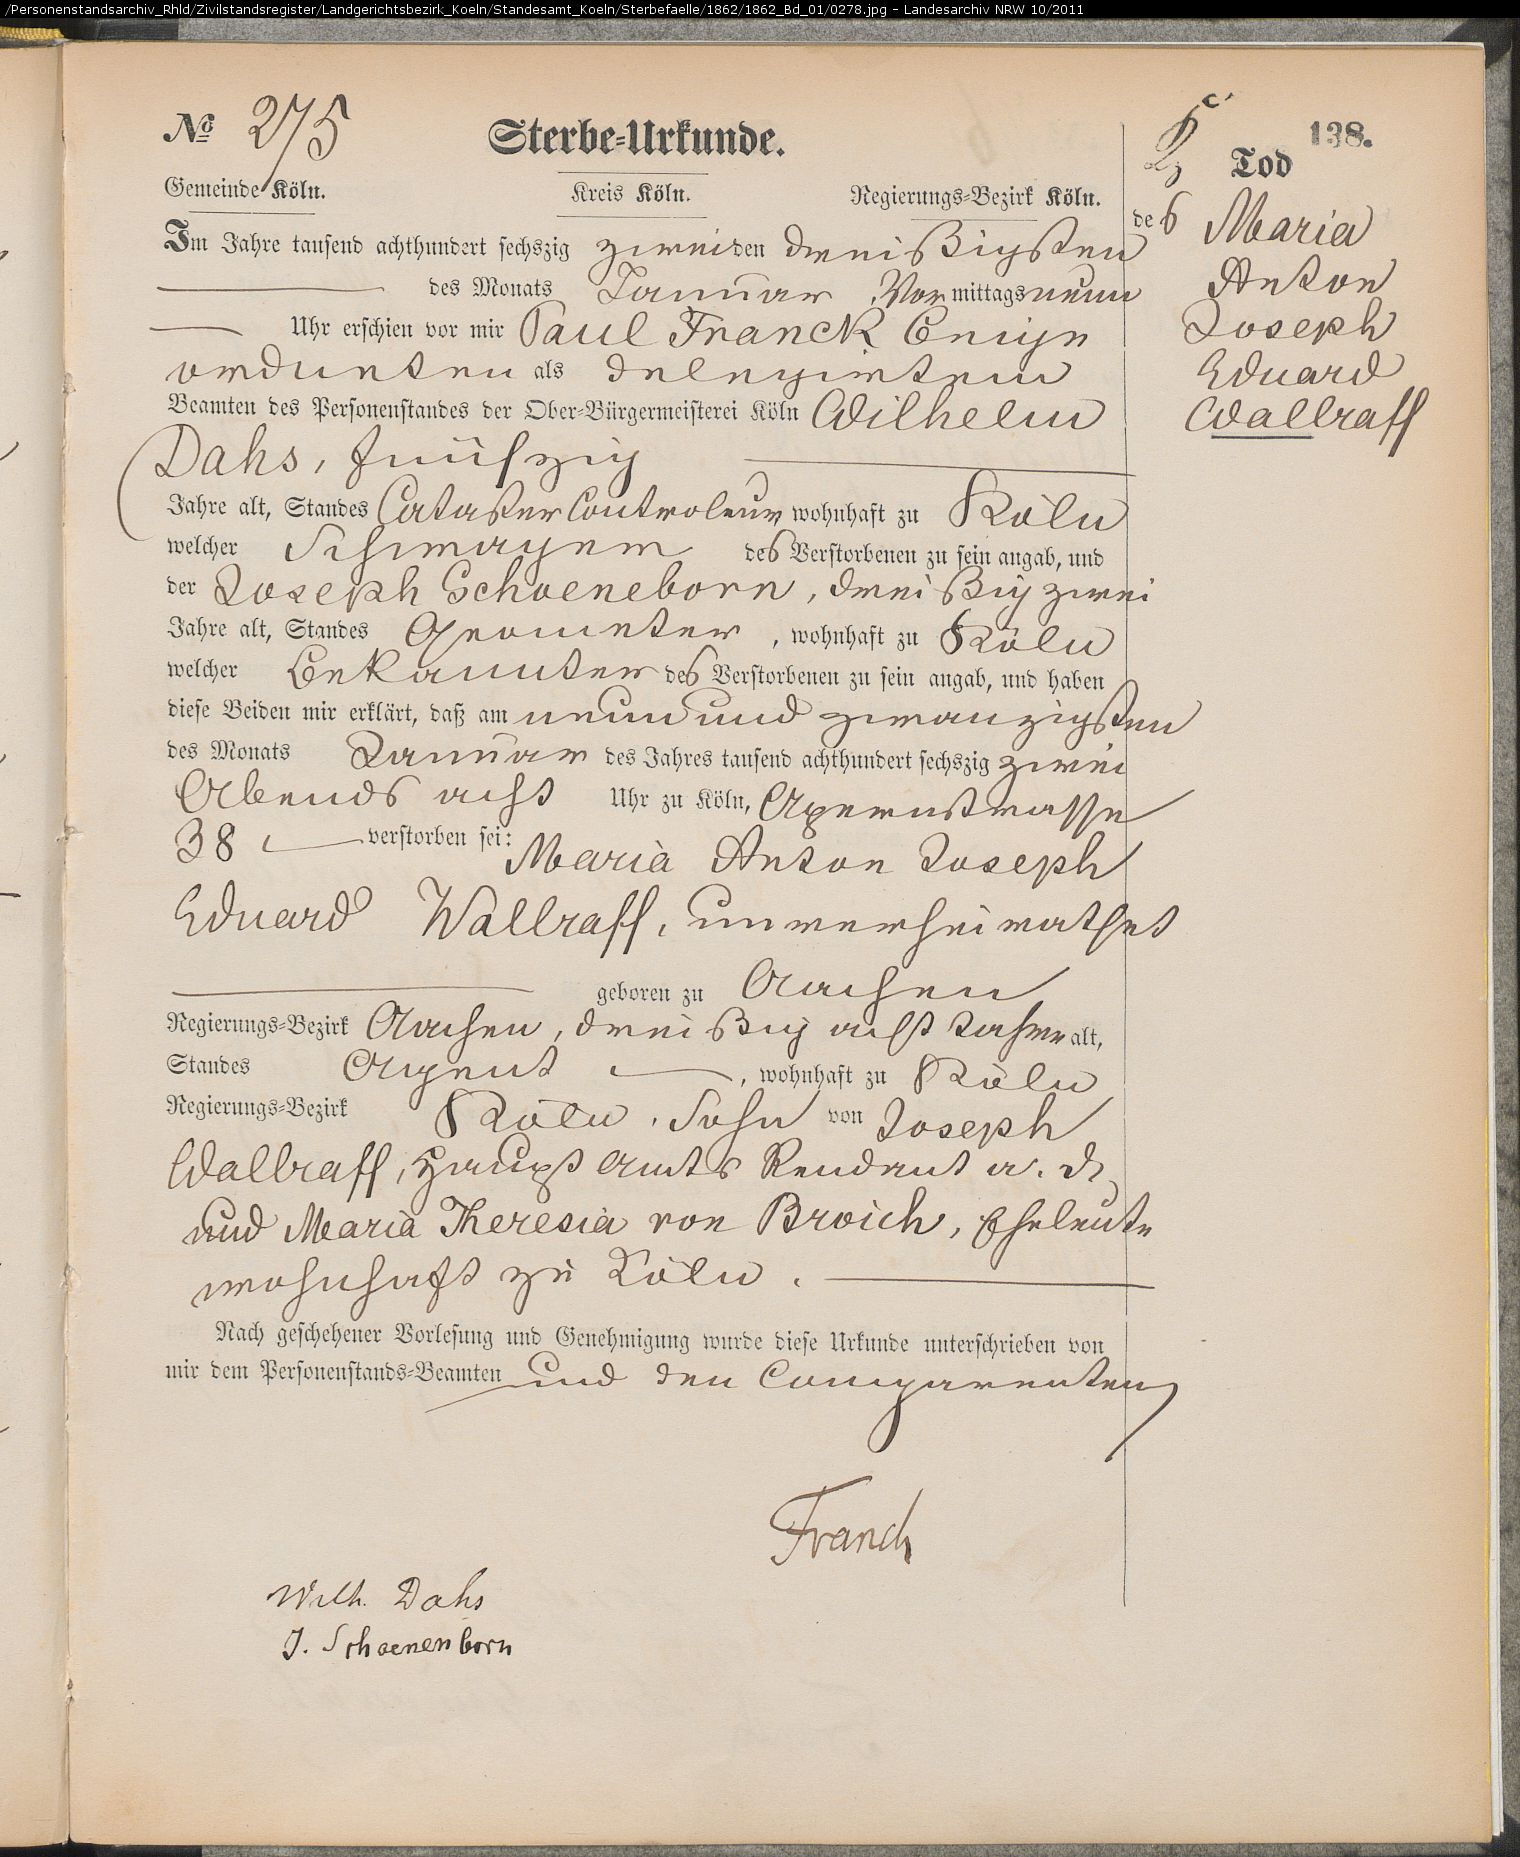 /Personenstandsarchiv_Rhld/Zivilstandsregister/Landgerichtsbezirk_Koeln/Standesamt_Koeln/Sterbefaelle/1862/1862_Bd_01/0278.jpg - Landesarchiv NRW 10/2011
No 275 Sterbe-Urkunde.
Gemeinde Köln. Kreis Köln. Regierungs-Bezirk Köln.
Im Jahre tausend achthundert sechszig zwei den dreißigsten
des Monats Januar Vormittags neun
Uhr erschien vor mir Paul Franck Beige
ordneten als delegirtem
Beamten des Personenstandes der Ober-Bürgermeisterei Köln Wilhelm
Dahs, fünfzig
Jahre alt, Standes Cataster Controleur wohnhaft zu Köln
welcher Schwager des Verstorbenen zu sein angab, und
der Joseph Schoeneborn, dreißig zwei
Jahre alt, Standes Geometer, wohnhaft zu Köln
welcher Bekannter des Verstorbenen zu sein angab, und haben
diese Beiden mir erklärt, daß am neun und zwanzigsten
des Monats Januar des Jahres tausend achthundert sechszig zwei
Abends acht Uhr zu Köln, Apernstrasse
38 verstorben sei: Maria Anton Joseph
Eduard Wallraff, unverheirathet
geboren zu Aachen
Regierungs-Bezirk Aachen, dreißig acht Jahre alt,
Standes Agent, wohnhaft zu Köln
Regierungs-Bezirk Köln, Sohn von Joseph
Wallraff, Haupt Amts Rendant a. D.
und Maria Theresia von Broich, Eheleute
wohnhaft zu Köln.
Nach geschehener Vorlesung und Genehmigung wurde diese Urkunde unterschrieben von
mir dem Personenstands-Beamten und den Comparenten
Franck
Wilh. Dahs
J. Schoenenborn
138.
Tod
des Maria
Anton
Joseph
Eduard
Wallraff